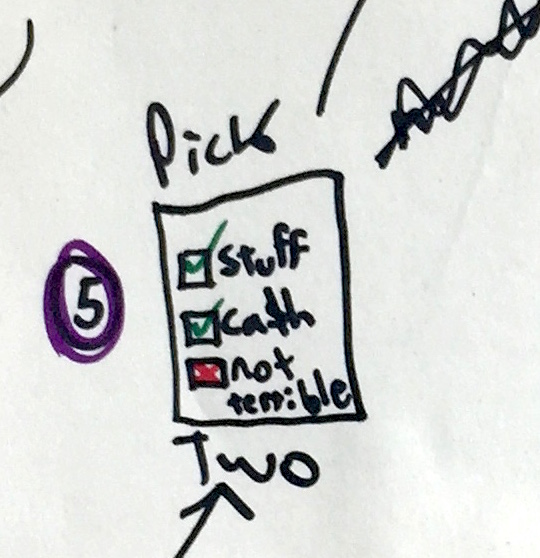 Pick
5
stuff
cath
not
terrible
Two